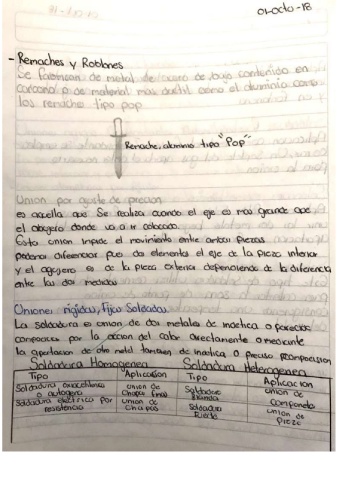 01-octo-18
- Remaches y Roblones
Se fabrican de metal de acero de bajo contenido en
carbono o de material mas ductil como el aluminio como
los remache tipo pop
Remache, aluminio tipo "Pop"
Union por ajuste de presion
es aquella que Se realiza cuando el eje es mas grande que
el abujero donde va a ir colocado.
Esta union impide el movimiento entre ambas piezas
podemos diferenciar pues dos elementos el eje de la pieza interior
y el agujero es de la pieza exterior dependiendo de la diferencia
entre las dos medidas
Uniones rigidas, Fijas Soldadas
La soldadura es union de dos metales de inactica o parecida
composicion por la accion del calor directamente o mediante
la aportacion de otro metal tambien de inactica o
Soldadura Homogenea Soldadura Heterogenea
Tipo Aplicacion Tipo Aplicacion
Soldadura oxiacetilenica o autogena union de Chapa finas Soldadura blanda union de componets
Soldadura electrica por resistencia union de Chapas Soldadura Fuerte union de pieze